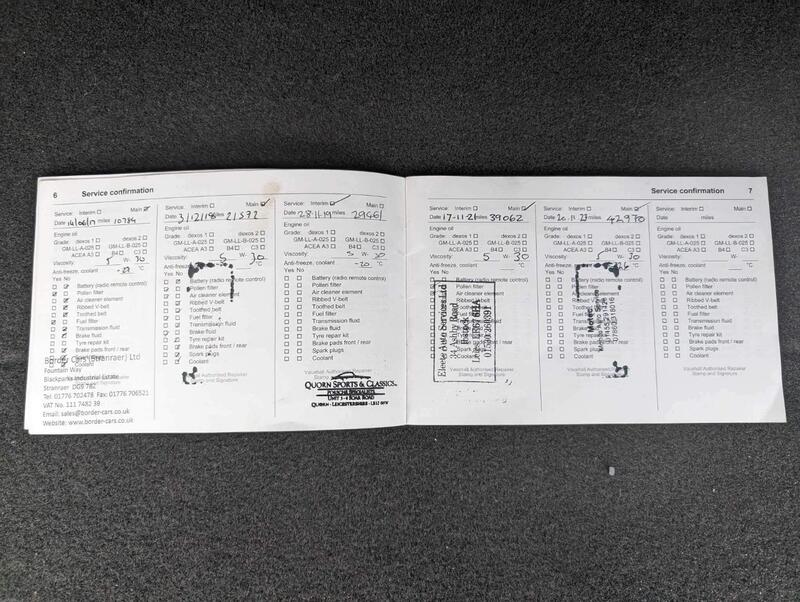 6 Service confirmation
Service: Interim Main
Date 14/06/17 miles 10784
Engine oil
Grade: dexos 1 dexos 2
GM-LL-A-025 GM-LL-B-025
ACEA A3 B4 C3
Viscosity: 5 W- 30
Anti-freeze, coolant °C
Yes No
Battery (radio remote control)
Pollen filter
Air cleaner element
Ribbed V-belt
Toothed belt
Fuel filter
Transmission fluid
Brake fluid
Tyre repair kit
Brake pads front / rear
Spark plugs
Coolant
Border Cars (Stranraer) Ltd
Fountain Way
Blackparks Industrial Estate
Stranraer DG9 7BZ
Tel: 01776 702478 Fax: 01776 706521
VAT No. 111 7482 39
Email: sales@border-cars.co.uk
Website: www.border-cars.co.uk
Service: Interim Main
Date 3/12/18 miles 21572
Engine oil
Grade: dexos 1 dexos 2
GM-LL-A-025 GM-LL-B-025
ACEA A3 B4 C3
Viscosity: 5 W- 30
Anti-freeze, coolant °C
Yes No
Battery (radio remote control)
Pollen filter
Air cleaner element
Ribbed V-belt
Toothed belt
Fuel filter
Transmission fluid
Brake fluid
Tyre repair kit
Brake pads front / rear
Spark plugs
Coolant
Vauxhall Authorised Repairer
Stamp and Signature
Service: Interim Main
Date 28-11-19 miles 29461
Engine oil
Grade: dexos 1 dexos 2
GM-LL-A-025 GM-LL-B-025
ACEA A3 B4 C3
Viscosity: 5 W- 30
Anti-freeze, coolant -20 °C
Yes No
Battery (radio remote control)
Pollen filter
Air cleaner element
Ribbed V-belt
Toothed belt
Fuel filter
Transmission fluid
Brake fluid
Tyre repair kit
Brake pads front / rear
Spark plugs
Coolant
Vauxhall Authorised Repairer
QUORN SPORTS & CLASSICS
PORSCHE SPECIALISTS
UNIT 3-4 SOAR ROAD
QUORN - LEICESTERSHIRE -
Service confirmation 7
Service: Interim Main
Date 17-11-21 miles 39062
Engine oil
Grade: dexos 1 dexos 2
GM-LL-A-025 GM-LL-B-025
ACEA A3 B4 C3
Viscosity: 5 W- 30
Anti-freeze, coolant °C
Yes No
Battery (radio remote control)
Pollen filter
Air cleaner element
Ribbed V-belt
Toothed belt
Fuel filter
Transmission fluid
Brake fluid
Tyre repair kit
Brake pads front / rear
Spark plugs
Coolant
Electr Auto Services Ltd
Road
Vauxhall Authorised Repairer
Stamp and Signature
Service: Interim Main
Date 20.11.23 miles 42970
Engine oil
Grade: dexos 1 dexos 2
GM-LL-A-025 GM-LL-B-025
ACEA A3 B4 C3
Viscosity: 5 W- 30
Anti-freeze, coolant °C
Yes No
Battery (radio remote control)
Pollen filter
Air cleaner element
Ribbed V-belt
Toothed belt
Fuel filter
Transmission fluid
Brake fluid
Tyre repair kit
Brake pads front / rear
Spark plugs
Coolant
Vauxhall Authorised Repairer
Service: Interim Main
Date miles
Engine oil
Grade: dexos 1 dexos 2
GM-LL-A-025 GM-LL-B-025
ACEA A3 B4 C3
Viscosity: W-
Anti-freeze, coolant °C
Yes No
Battery (radio remote control)
Pollen filter
Air cleaner element
Ribbed V-belt
Toothed belt
Fuel filter
Transmission fluid
Brake fluid
Tyre repair kit
Brake pads front / rear
Spark plugs
Coolant
Vauxhall Authorised Repairer
Stamp and Signature